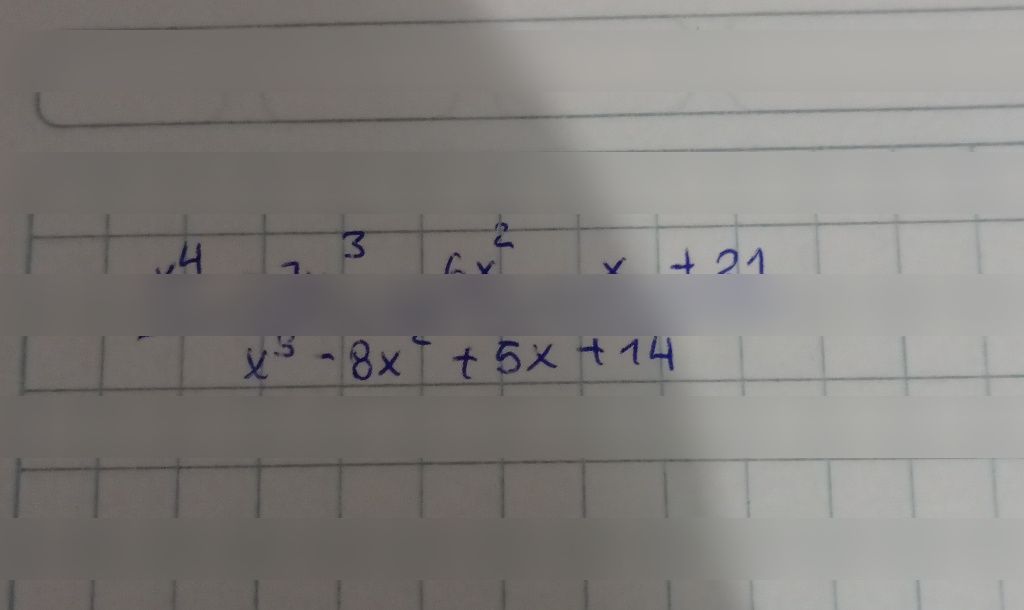 x⁴ 7x³ 6x² x + 21
x³ - 8x² + 5x + 14